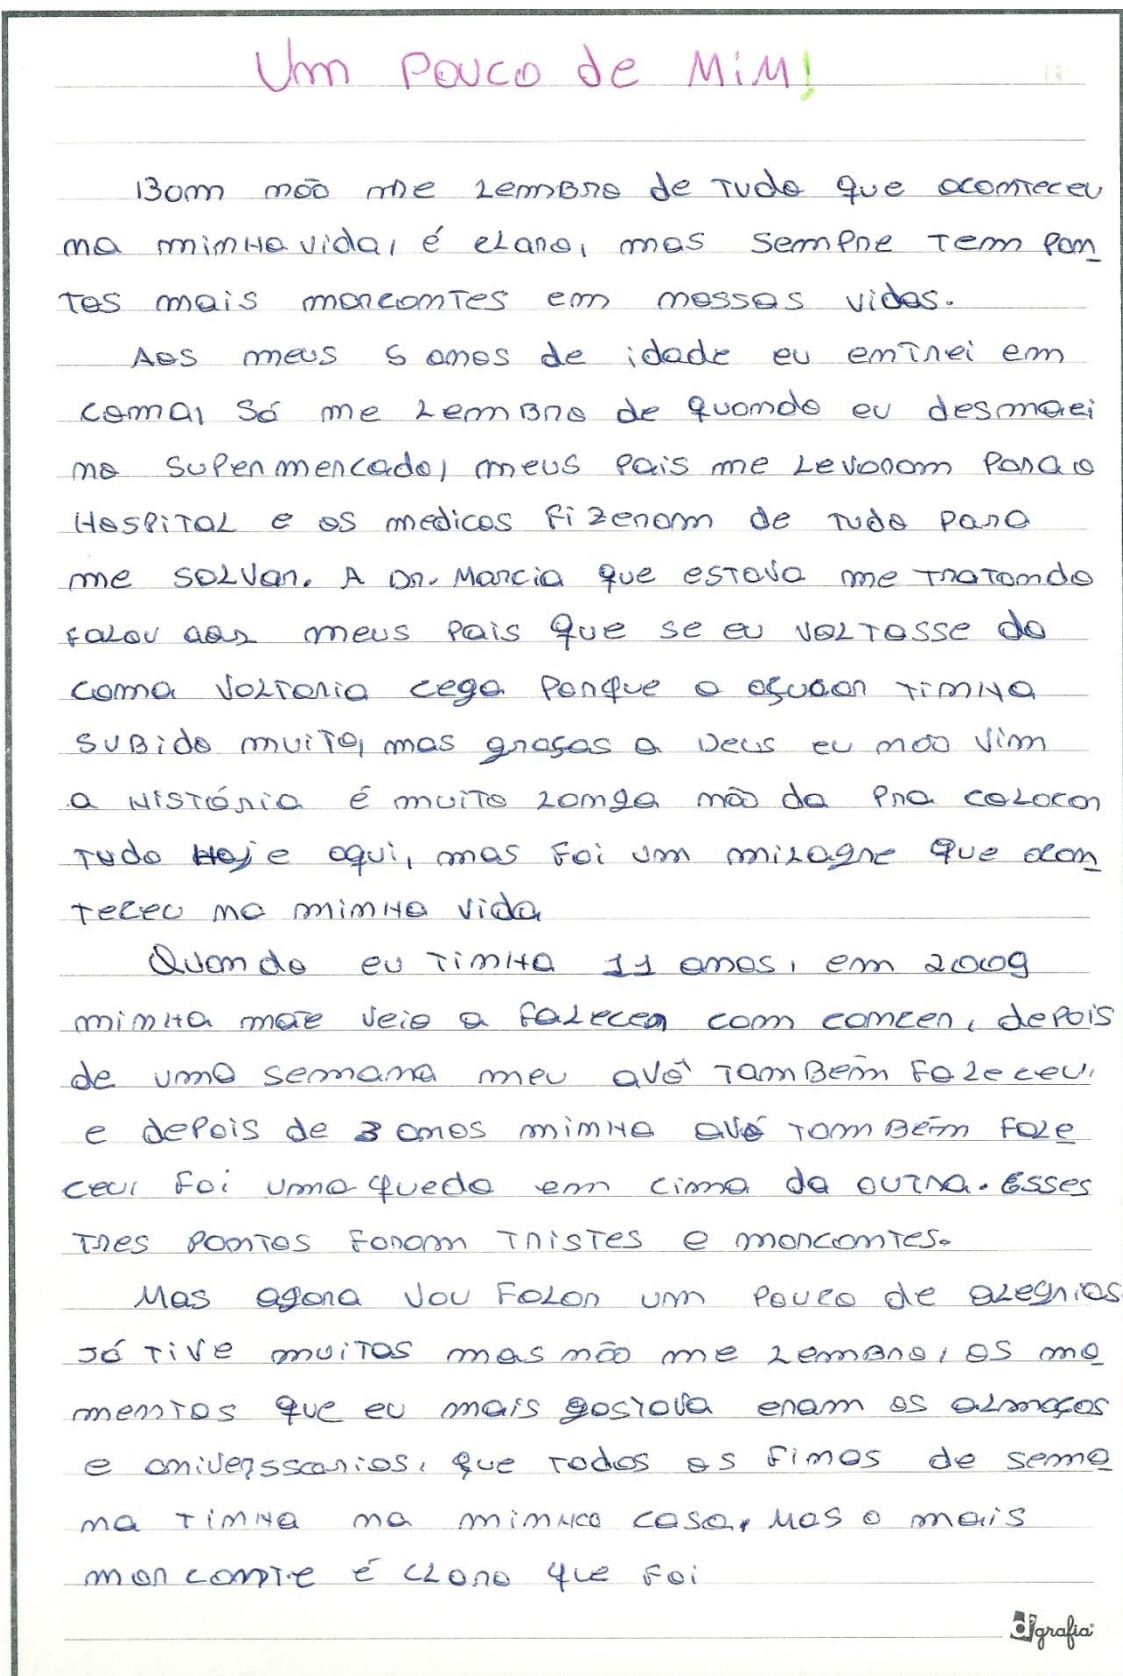 Um Pouco de Mim!
Bom não me Lembro de Tudo que aconteceu
na minha vida, é claro, mas sempre tem pon
tos mais marcantes em nossas vidas.
Aos meus 5 anos de idade eu entrei em
coma, só me Lembro de quando eu desmaei
no supermercado, meus pais me Levaram para o
Hospital e os medicos fizeram de tudo para
me salvar. A Dr. Marcia que estava me tratando
falou aos meus pais que se eu voltasse do
coma voltaria cega porque o açucar tinha
subido muito, mas graças a Deus eu não vim
a história é muito longa não da pra colocar
tudo Hoje aqui, mas foi um milagre que acon
teceu na minha vida
Quando eu tinha 11 anos, em 2009
minha mãe veio a falecer com cancer, depois
de uma semana meu avô também faleceu,
e depois de 3 anos minha avó também fale
ceu, foi uma queda em cima da outra. Esses
tres pontos foram tristes e marcantes.
Mas agora vou falar um pouco de alegrias
já tive muitas mas não me Lembro, os mo
mentos que eu mais gostava eram os almoços
e aniverssarios, que todos os finas de sema
na tinha na minha casa, Mas o mais
marcante é claro que foi
grafia